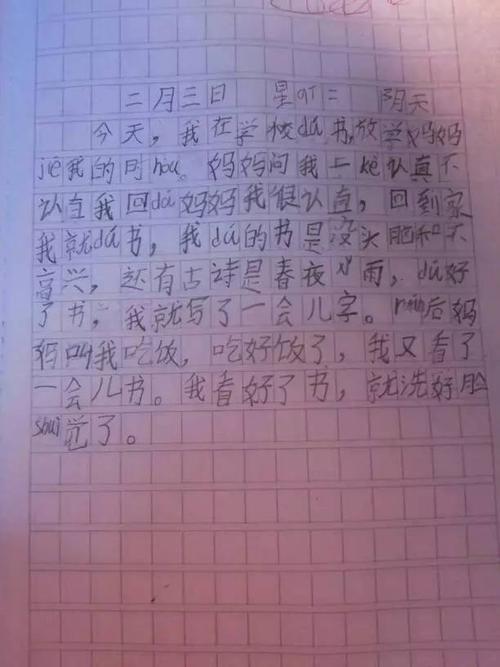 二月三日 星qī二 阴天
今天，我在学校dú书，放学妈妈
jiē我的时hou。妈妈问我上kè认真不
认真我回dá妈妈我很认真，回到家
我就dú书，我dú的书是没头脑和不
高兴，还有古诗是春夜xǐ雨，dú好
了书，我就写了一会儿字。rán后妈
妈叫我吃饭，吃好饭了，我又看了
一会儿书。我看好了书，就洗好脸
shuì觉了。